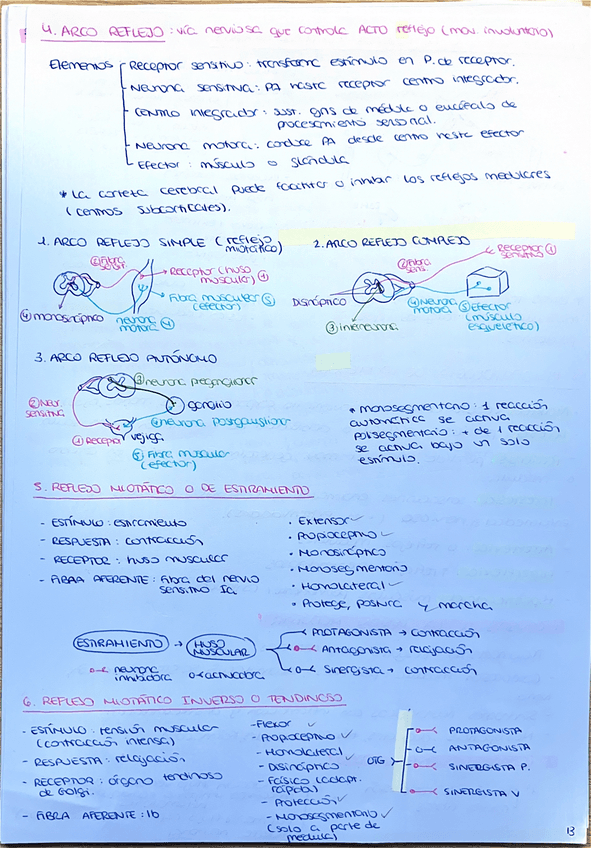 4. ARCO REFLEJO : vía nerviosa que controla ACTO reflejo (mov. involuntario)
Elementos
Receptor sensitivo : transforma estímulo en P. de receptor.
Neurona sensitiva : PA hasta receptor centro integrador.
CENTRO integrador : sust. gris de médula o encéfalo de
procesamiento sensorial.
Neurona motora : conduce PA desde centro hasta efector
Efector : músculo o glándula
* La corteza cerebral puede facilitar o inhibir los reflejos medulares
(centros subcorticales).
1. ARCO REFLEJO SIMPLE (reflejo
miotático)
② Fibra
sensit.
Receptor (huso
muscular) ①
Fibra muscular ⑤
(efector)
④ monosináptico
neurona
motora ④
2. ARCO REFLEJO COMPLEJO
Receptor ①
sensitivo
② Fibra
sens.
Disináptico
④ Neurona
motora
⑤ Efector
(músculo
esquelético)
③ interneurona
3. ARCO REFLEJO AUTÓNOMO
③ neurona preganglionar
② Neur.
sensitiva
ganglio
④ neurona postganglionar
① Receptor
vejiga
⑤ Fibra muscular
(efector)
* monosegmentario : 1 reacción
automática se activa
polisegmentario : + de 1 reacción
se activa bajo un solo
estímulo.
5. REFLEJO MIOTÁTICO O DE ESTIRAMIENTO
- ESTÍMULO : estiramiento
- RESPUESTA : contracción
- RECEPTOR : huso muscular
- FIBRA AFERENTE : fibra del nervio
sensitivo Ia
• Extensor ✓
• Propioceptivo ✓
• Monosináptico
• Monosegmentario
• Homolateral ✓
• Protege, postura y marcha
ESTIRAMIENTO → HUSO
MUSCULAR
PROTAGONISTA → contracción
Antagonista → relajación
Sinergista → contracción
neurona
inhibidora
activadora
6. REFLEJO MIOTÁTICO INVERSO O TENDINOSO
- ESTÍMULO : tensión muscular
(contracción intensa)
- RESPUESTA : relajación
- RECEPTOR : órgano tendinoso
de Golgi.
- FIBRA AFERENTE : Ib
- Flexor ✓
- Propioceptivo ✓
- Homolateral ✓
- Disináptico
- Fásico (adapt.
rápida)
- Protección ✓
- Monosegmentario ✓
(solo a parte de
médula)
OTG
PROTAGONISTA
ANTAGONISTA
SINERGISTA P.
SINERGISTA V
13